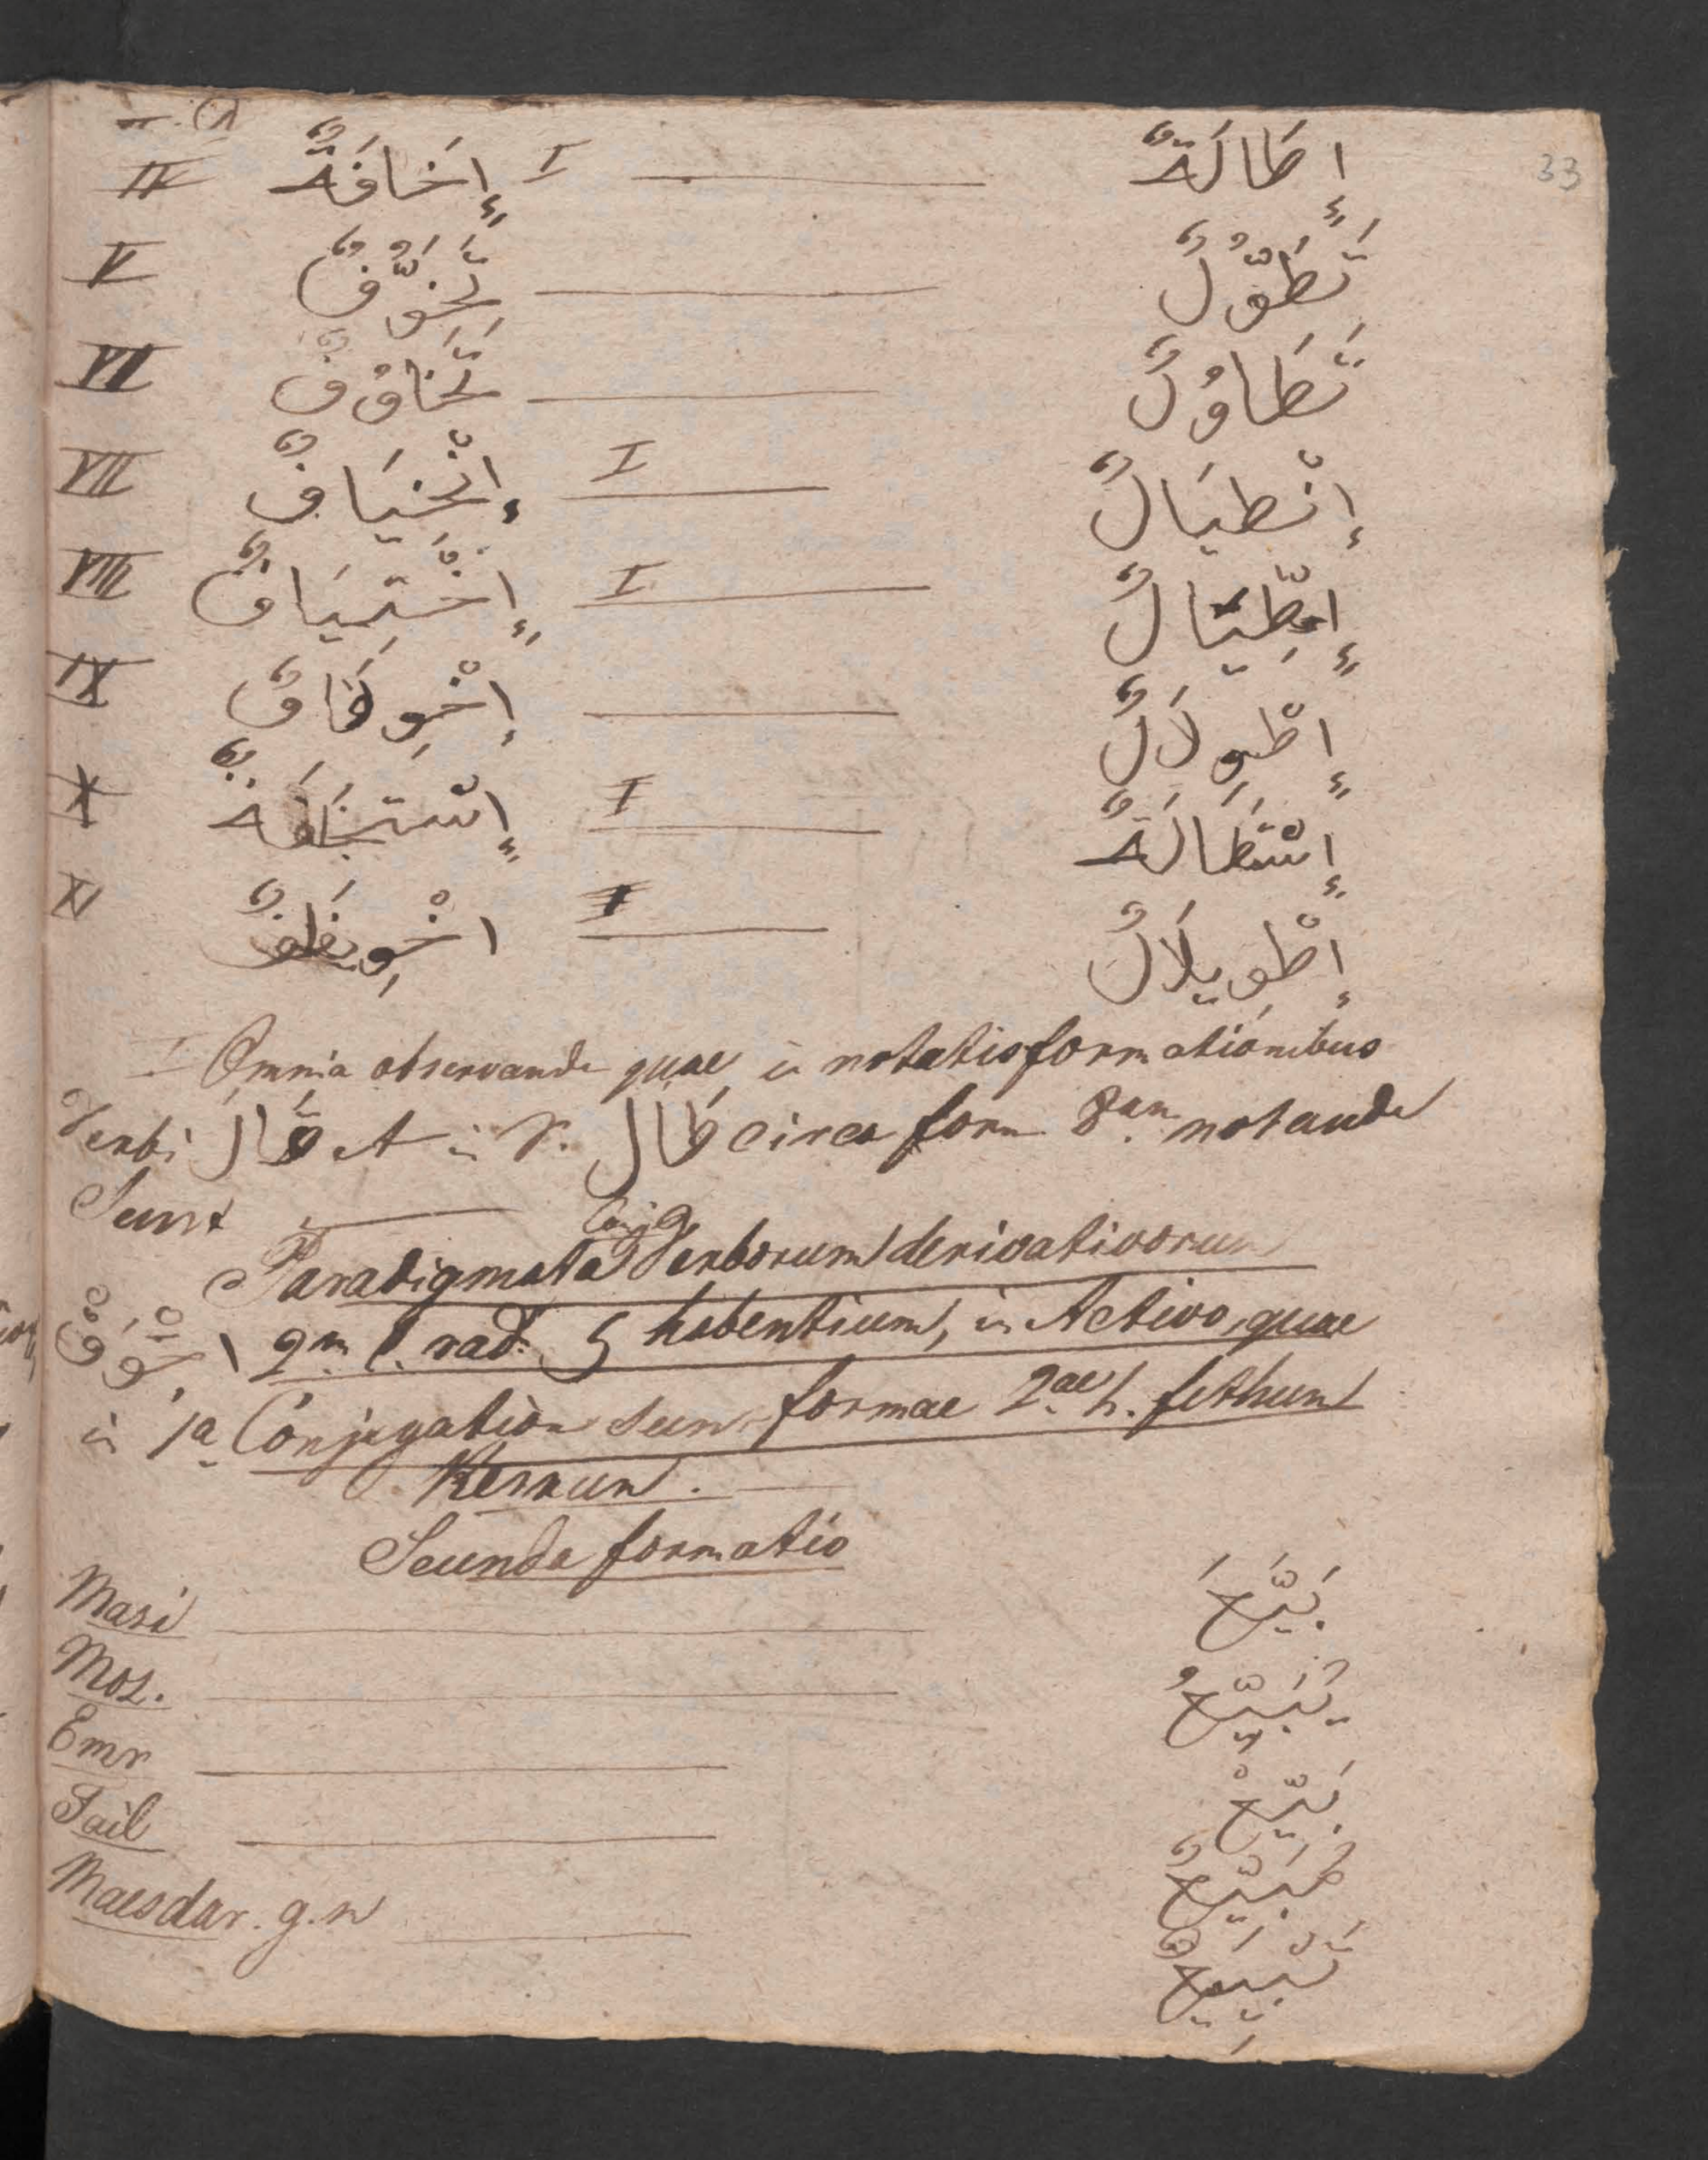 33
IV إِخَافَةٌ I إِطَالَةٌ
V تَخَوُّفٌ تَطَوُّلٌ
VI تَخَاوُفٌ تَطَاوُلٌ
VII إنْخيَافٌ I إنْطيَالٌ
VIII إِخْتِيَافٌ I إِطِّيَالٌ
IX إخْوِفَافٌ إِطْوِلَالٌ
X إِسْتخَافَةٌ I إِسْتَطَالَةٌ
XI اخْوِيفَافٌ إطْوِيلَالٌ
I Omnia observanda quae in notatis formationibus
Verbi قَالَ et in V. طَالَ circa form 8an notanda
Sunt
Conjg
Paradigmata Verborum derivativorum
2m l. rad. habentium, in Activo, quae
in 1a Conjugation sunt formae 2ae h. fethum
Kesrum.
Secunda formatio
Mazi بَيَّعَ
Moz. يُبَيِّعُ
Emr بَيِّعْ
Fail مُبَيِّعٌ
Maesdar. g. n تَبْيِيعٌ